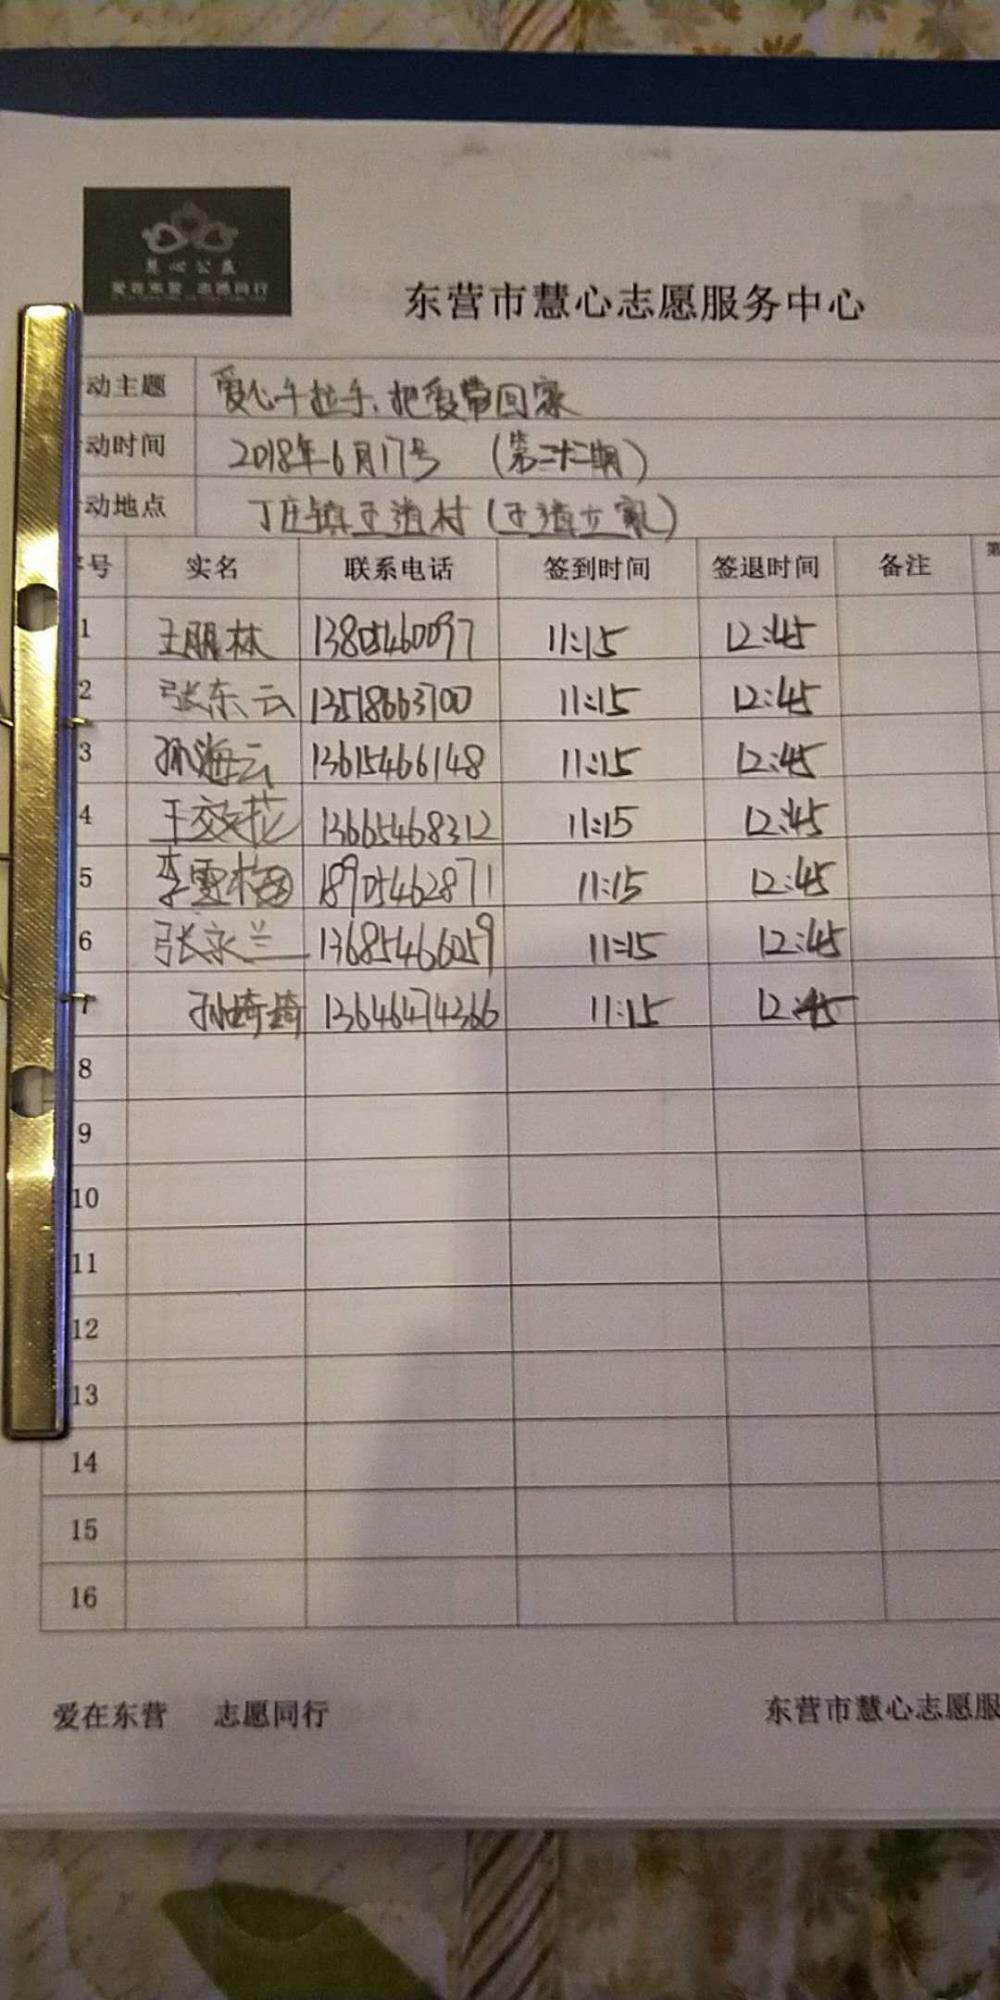 慧心公益
爱在东营 志愿同行
东营市慧心志愿服务中心
动主题 爱心手拉手、把爱带回家
动时间 2018年6月17号 (第二十二期)
动地点 丁庄镇王道村(王道立家)
号 实名 联系电话 签到时间 签退时间 备注
1 王鹏林 13805460097 11:15 12:45
2 张东云 13518663700 11:15 12:45
3 孙海云 13615466148 11:15 12:45
4 王效花 13665468312 11:15 12:45
5 李雪梅 18905462871 11:15 12:45
6 张永兰 13685466059 11:15 12:45
7 孙崎崎 13646474366 11:15 12:45
8
9
10
11
12
13
14
15
16
爱在东营 志愿同行 东营市慧心志愿服